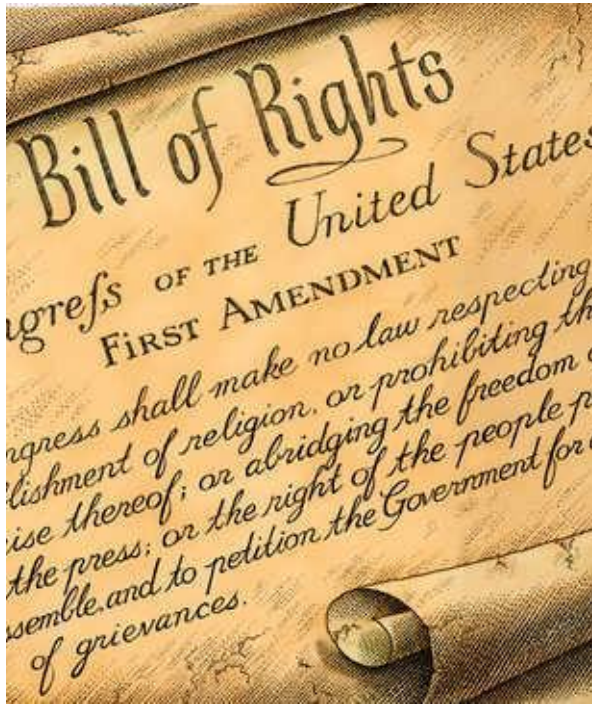 Bill of Rights
ngreſs OF THE United States
FIRST AMENDMENT
ngress shall make no law respecting
lishment of religion, or prohibiting th
ise thereof; or abridging the freedom
the press; or the right of the people p
ssemble, and to petition the Government for
of grievances.